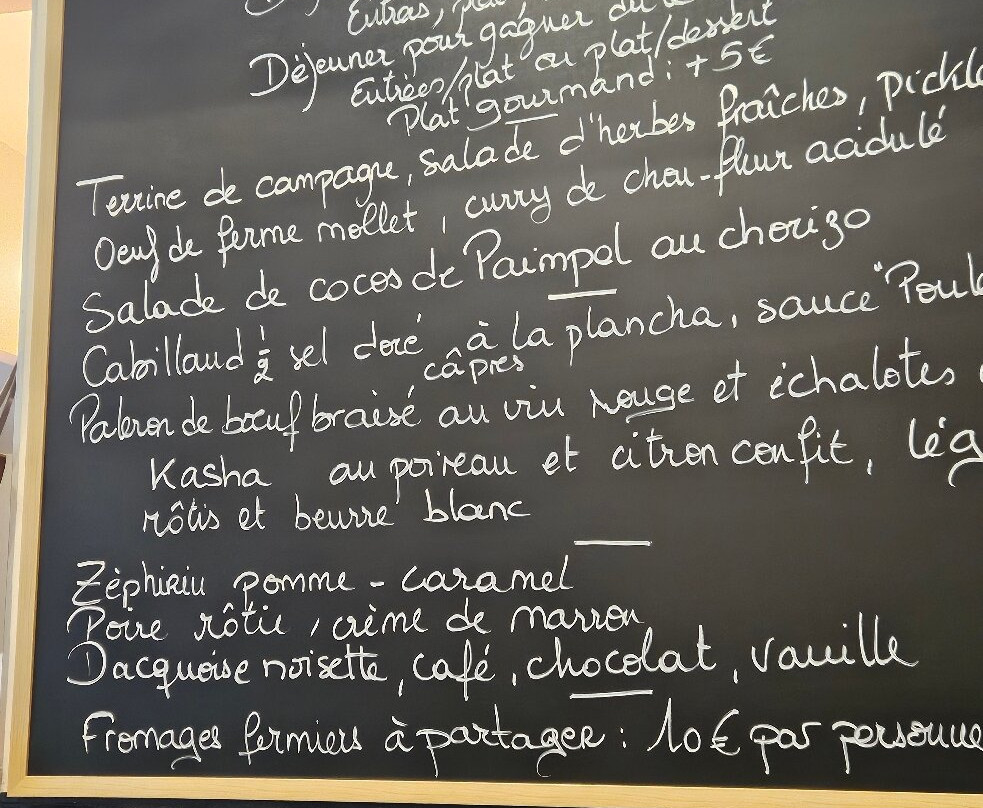 Entrées, plat
Déjeuner pour gagner du
Entrées/plat ou plat/dessert
Plat gourmand : +5€
Terrine de campagne, salade d'herbes fraîches, pickl
Oeuf de ferme mollet, curry de chou-fleur acidulé
Salade de cocos de Paimpol au chorizo
Cabillaud ½ sel doré à la plancha, sauce "Poul
câpres
Paleron de bœuf braisé au vin rouge et échalotes
Kasha au poireau et citron confit, lég
rôtis et beurre blanc
Zéphirin pomme - caramel
Poire rôtie, crème de marron
Dacquoise noisette, café, chocolat, vanille
Fromages fermiers à partager : 10€ par personne